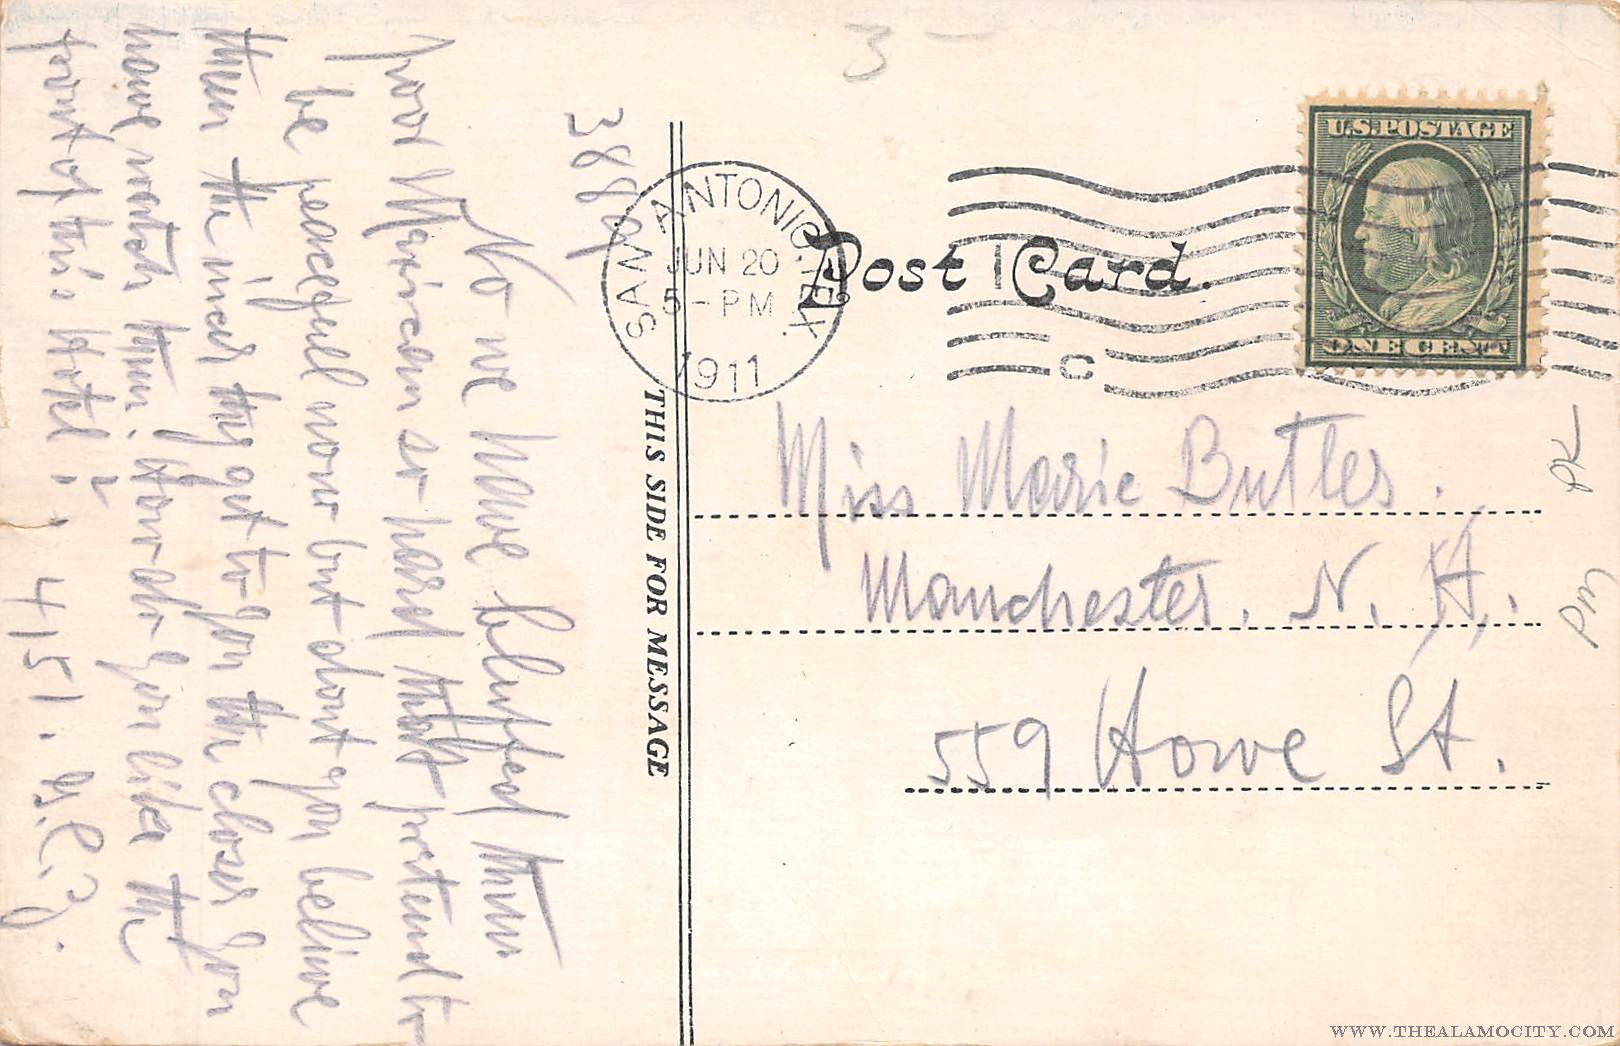 3889
No we have bluffed them
poor Mexican so hard that pretend to
be peacefull now but dont you believe
them the nicer they get to you the closer you
have watch them. How do you like the
front of this Hotel?
4151.
THIS SIDE FOR MESSAGE
3 —
SAN ANTONIO, TEX.
JUN 20
5 - PM
1911
C
U.S. POSTAGE
ONE CENT
Post Card.
Miss Marie Butler.
Manchester. N. H.
559 Howe St.
PM
WWW.THEALAMOCITY.COM